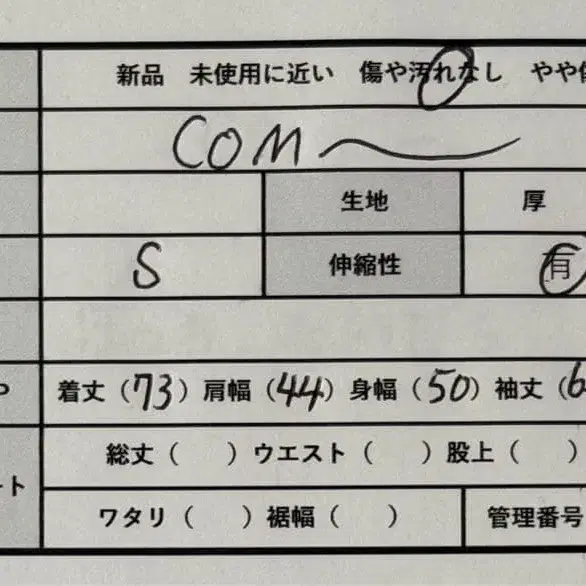 新品 未使用に近い 傷や汚れなし やや
COM
生地 厚
S 伸縮性 有
着丈(73) 肩幅(44) 身幅(50) 袖丈(6
総丈( )ウエスト( )股上( )
ト
ワタリ( )裾幅( ) 管理番号